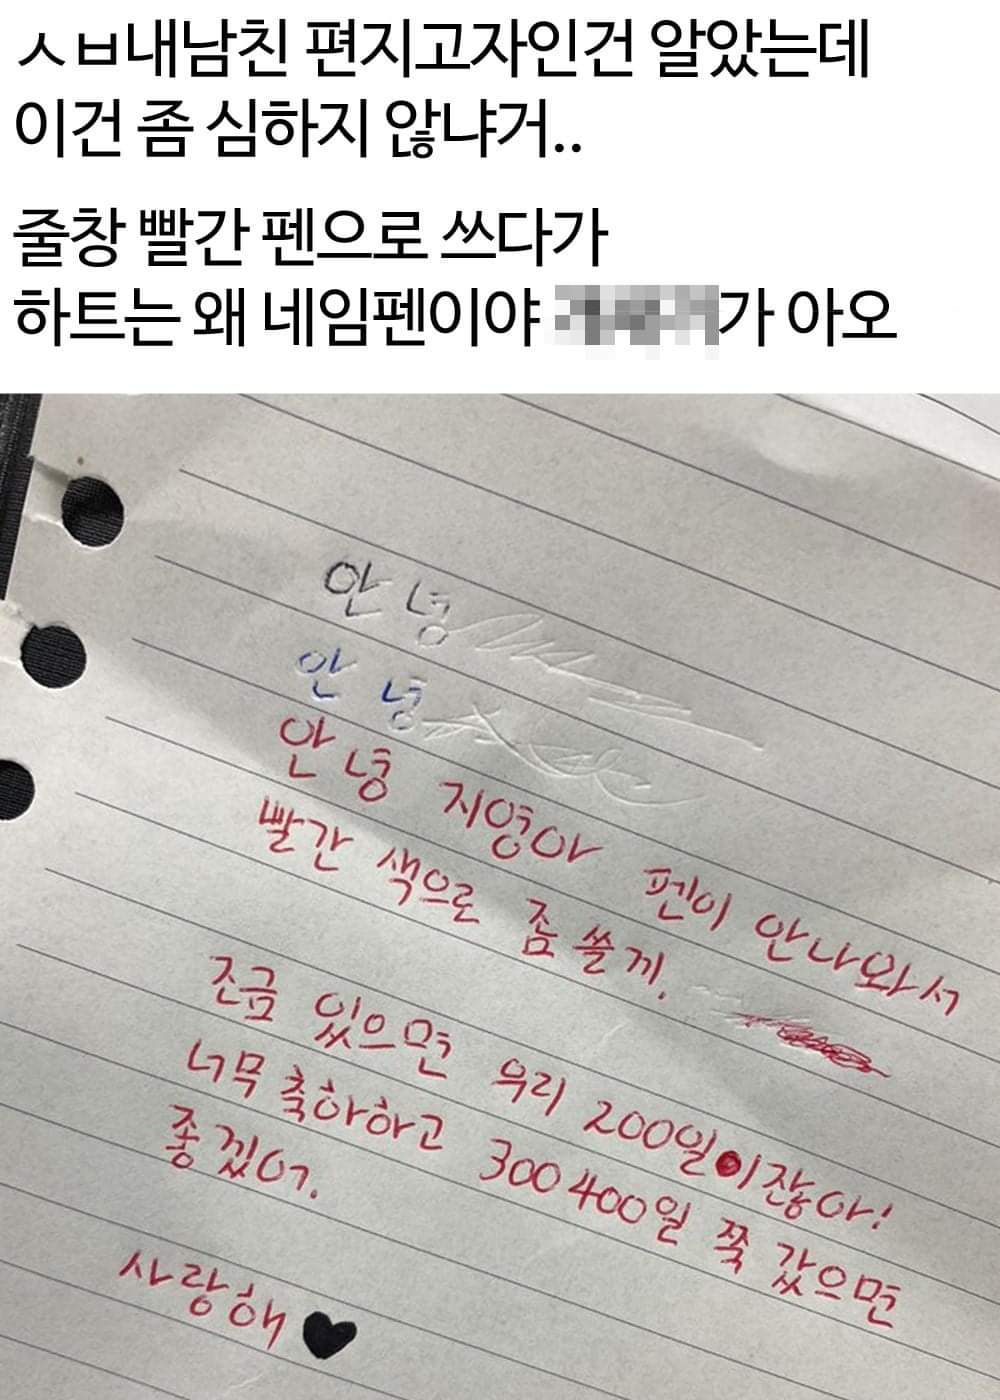 ㅅㅂ내남친 편지고자인건 알았는데
이건 좀 심하지 않냐거..
줄창 빨간 펜으로 쓰다가
하트는 왜 네임펜이야 가 아오
안녕
안녕
안녕 지영아 펜이 안나와서
빨간 색으로 좀 쓸께.
조금 있으면 우리 200일이잖아!
너무 축하하고 300 400일 쭉 갔으면
좋겠어.
사랑해♥